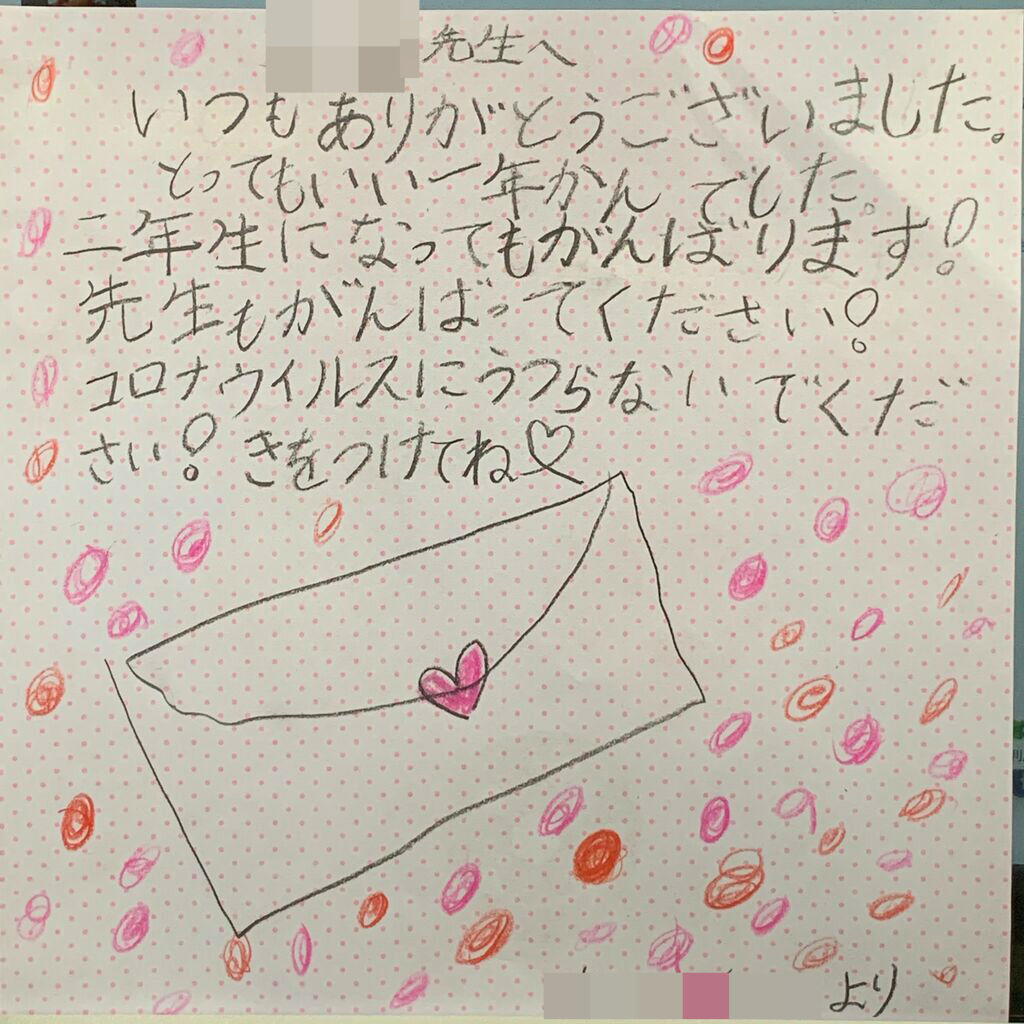 先生へ
いつもありがとうございました。
とってもいい一年かんでした。
二年生になってもがんばります!
先生もがんばってください!
コロナウイルスにうつらないでくだ
さい!きをつけてね♡
より